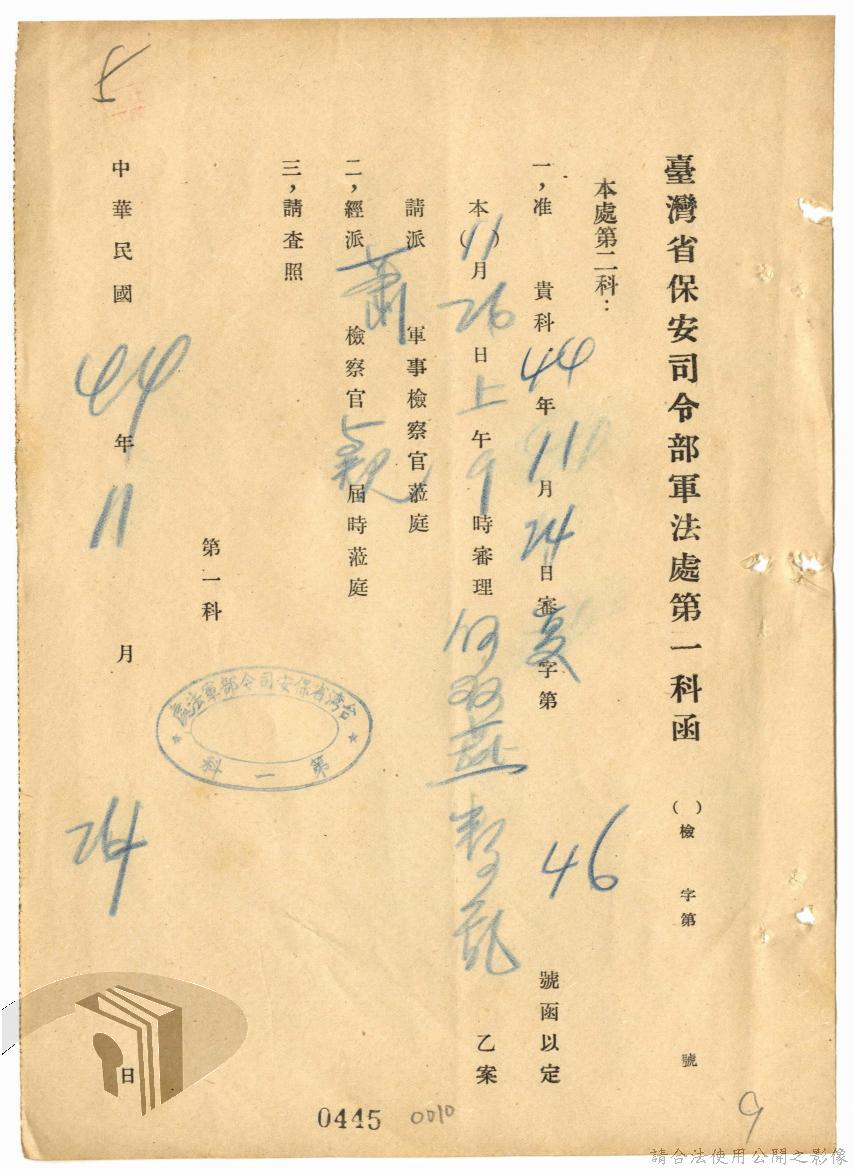 臺灣省保安司令部軍法處第一科函 ( )檢 字第 號
本處第二科：
一，准 貴科44年11月24日審 字第46號函以定
本(11)月26日上午9時審理 叛亂乙案
請派 軍事檢察官蒞庭
二，經派蕭檢察官 屆時蒞庭
三，請查照
第一科
台灣省保安司令部軍法處
第一科
中華民國44年11月24日
0445
0010
9
請合法使用公開之影像